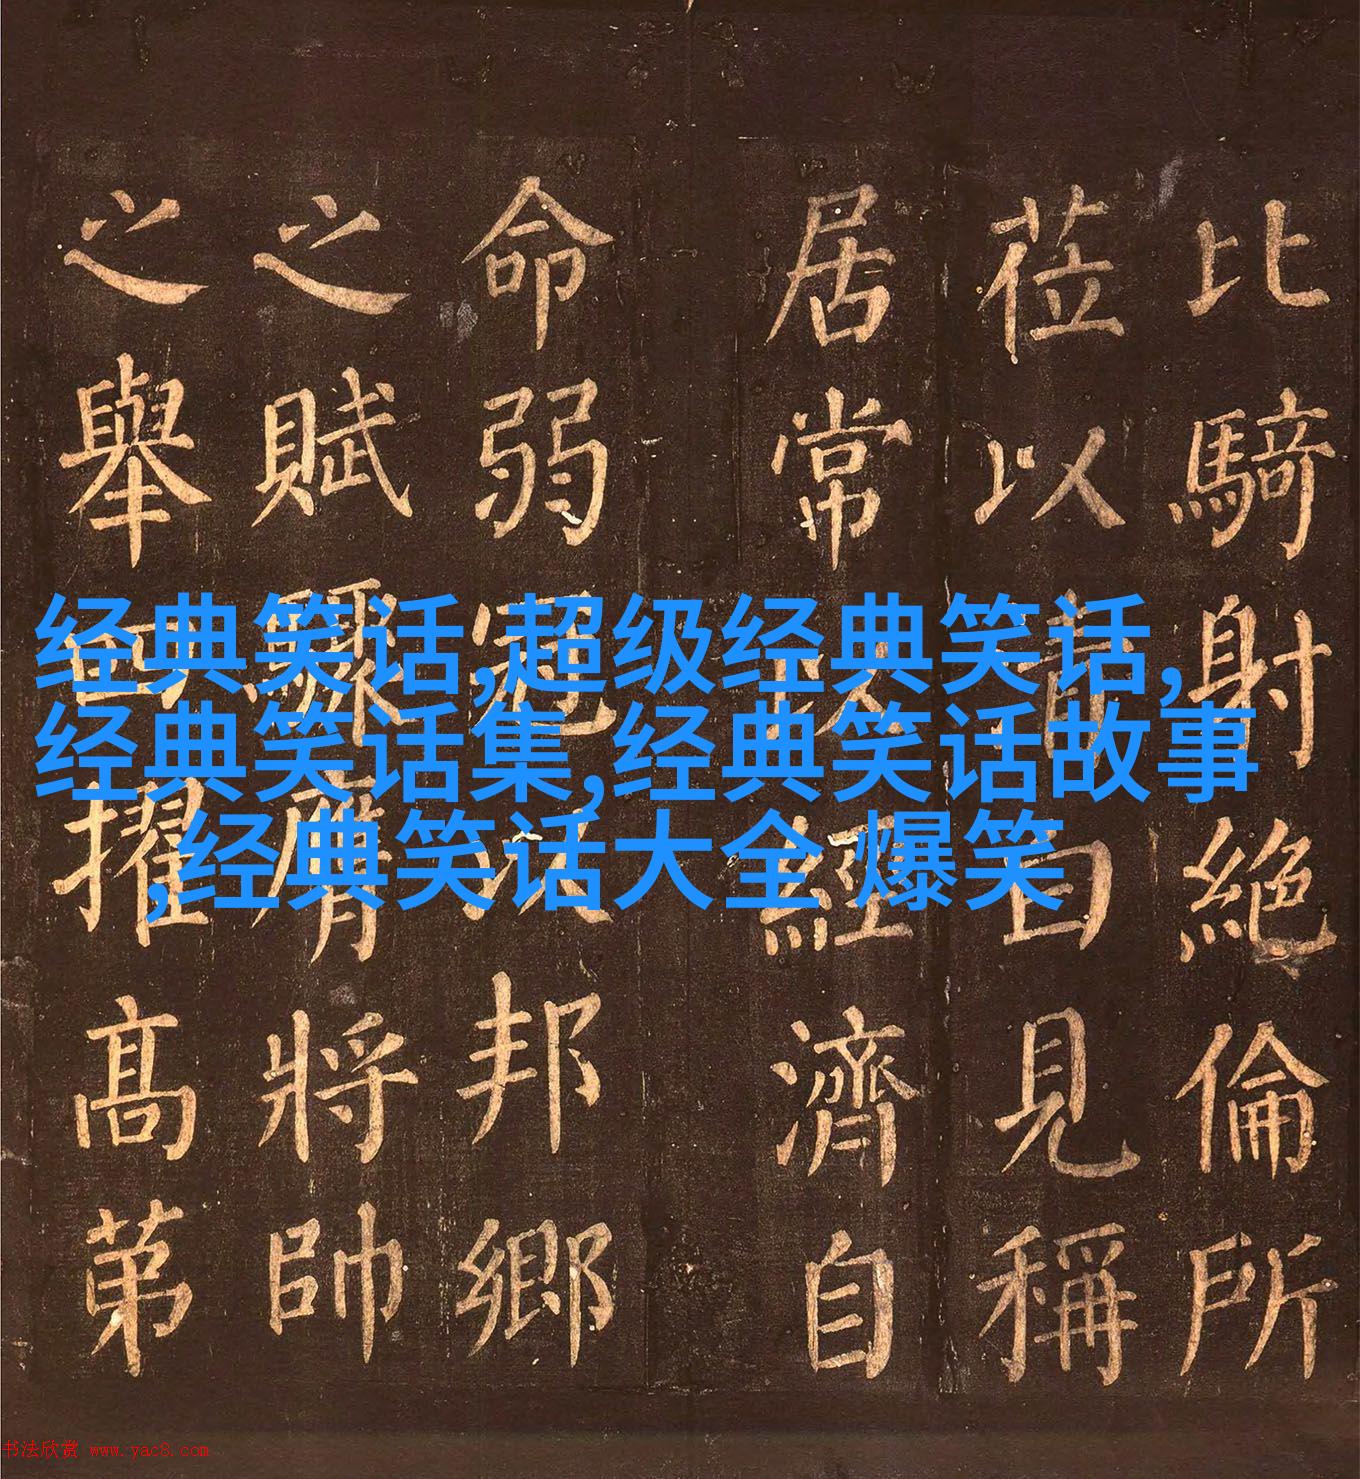 比騎射絕倫所
莅以清白見稱
居常以經濟自
命弱冠邦鄉
之賦驟膺將帥
之舉擢髙苐
经典笑话,超级经典笑话,
经典笑话集,经典笑话故事
,经典笑话大全 爆笑
书法欣赏 www.yac8.com